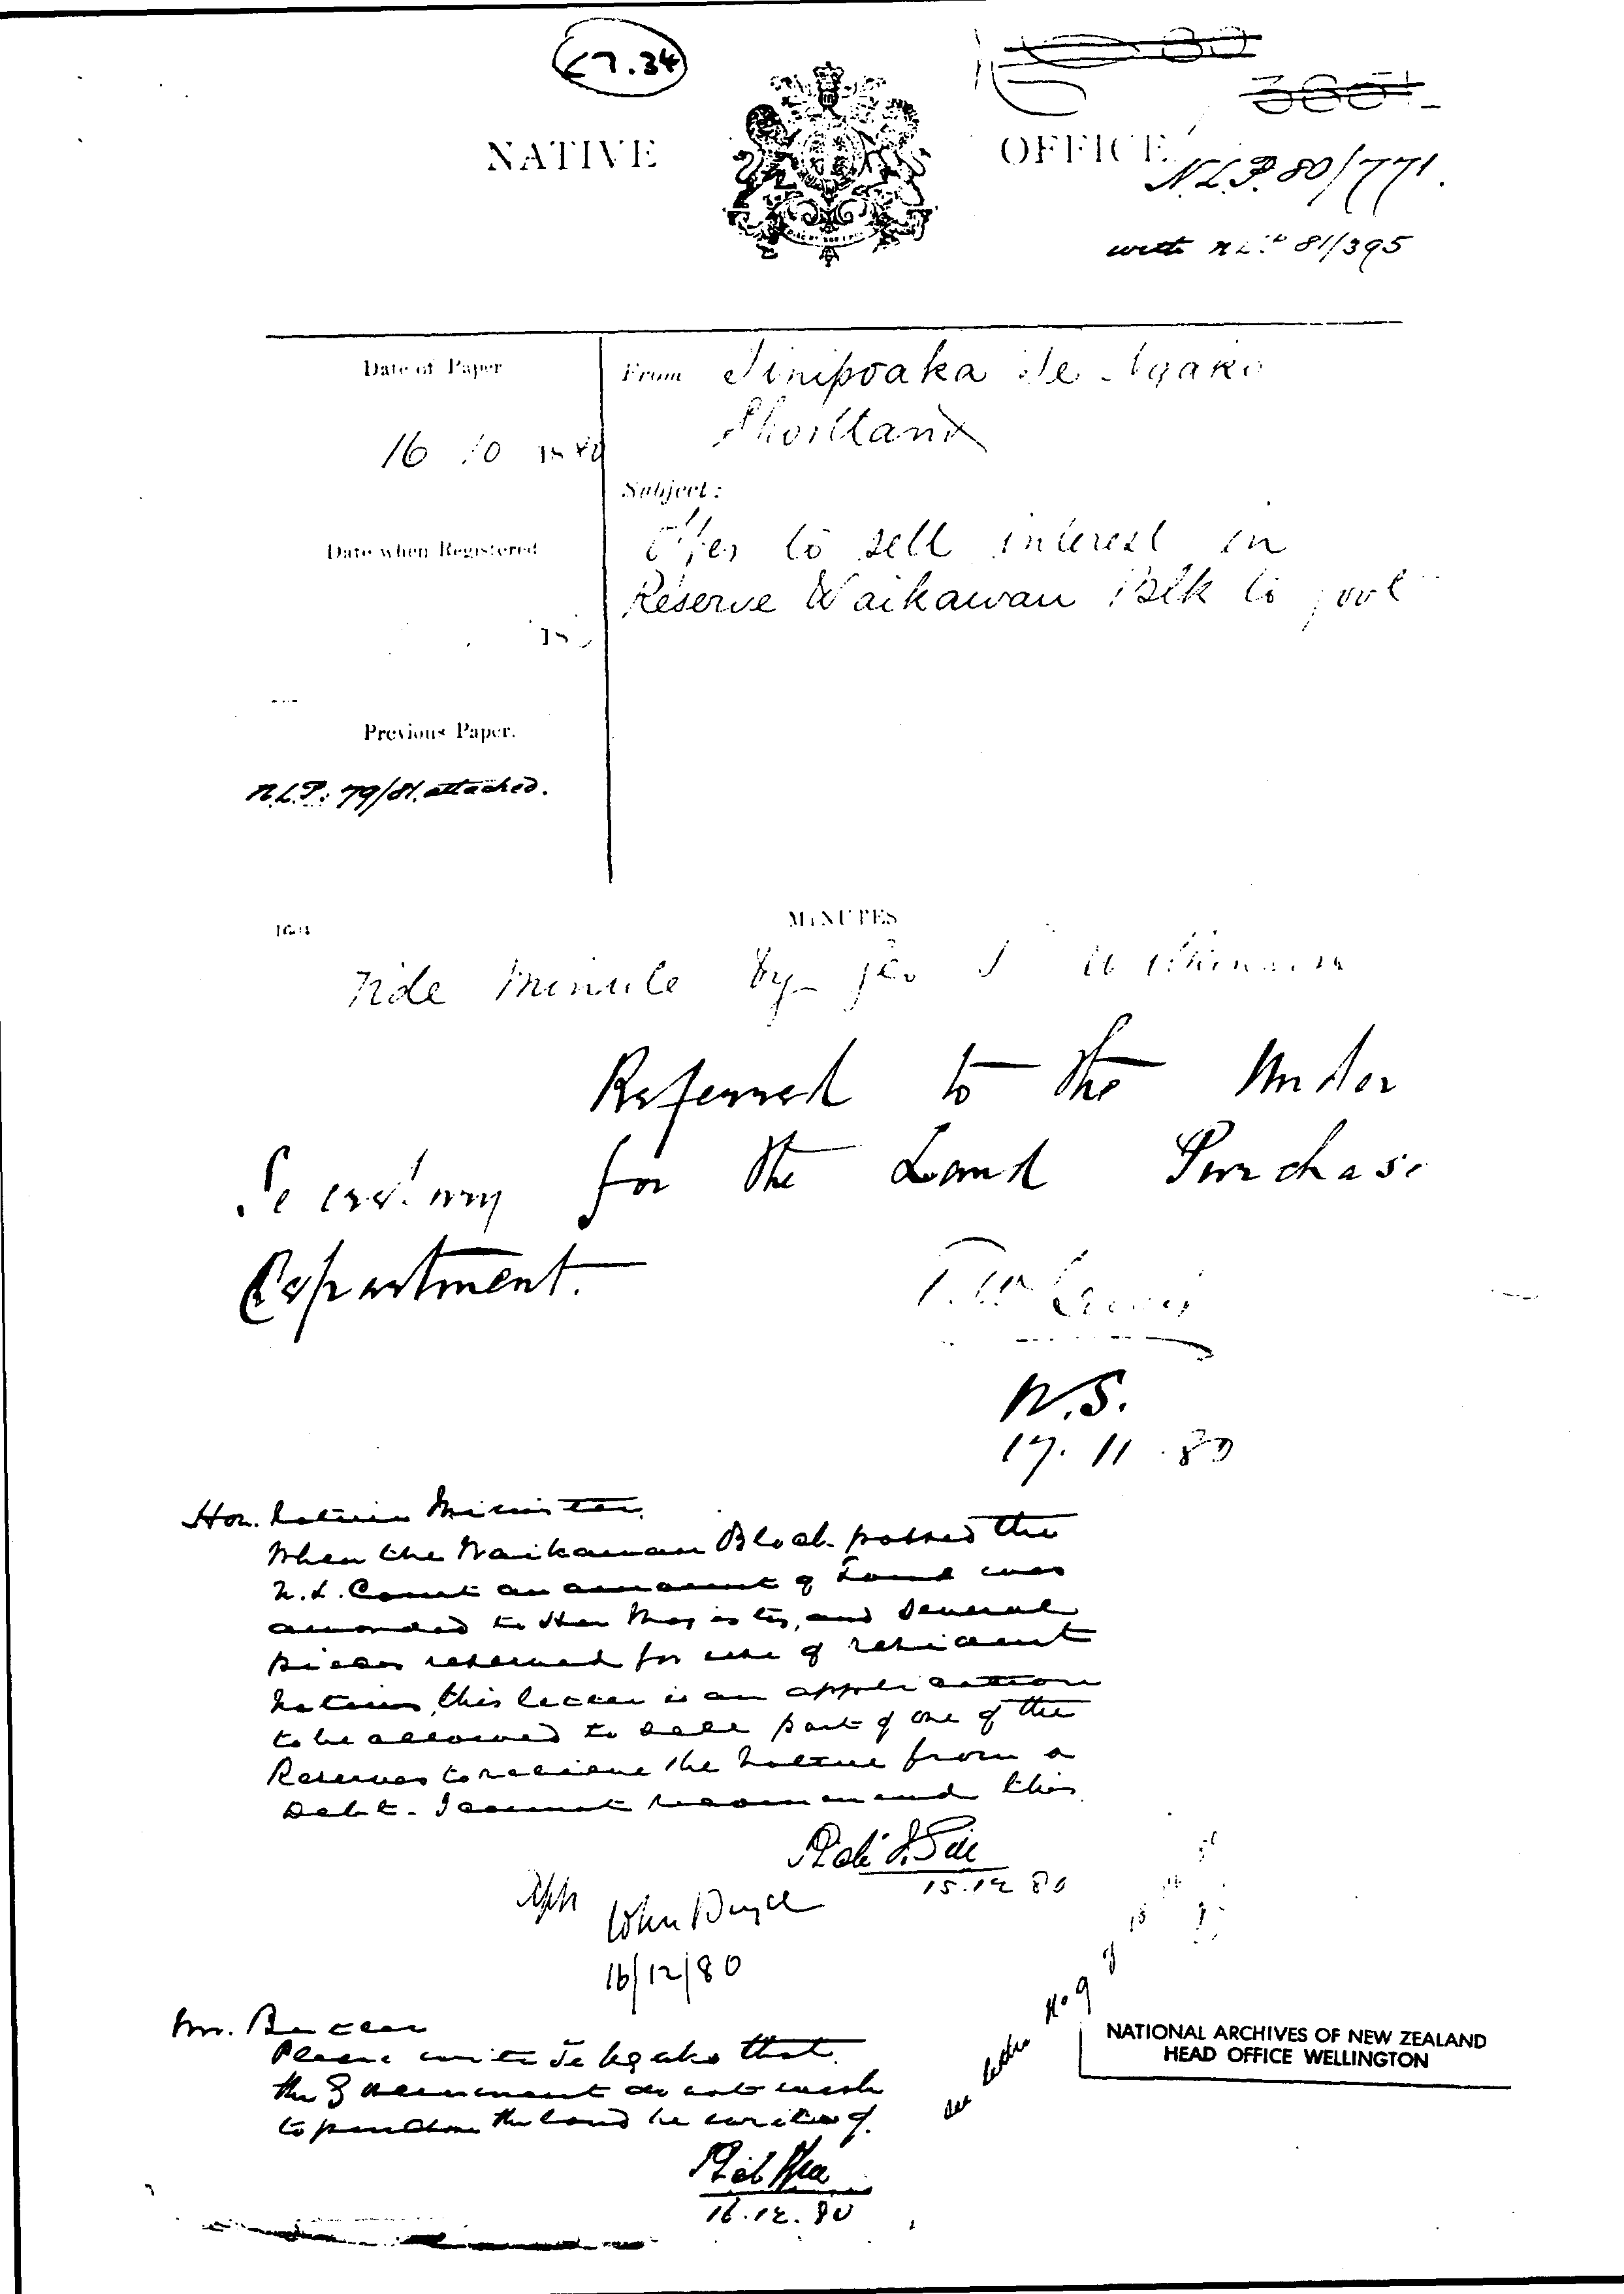 67.34
NATIVE OFFICE
N.L.P. 80/771.
with N.L.P. 81/395
Date of Paper
16 10 1880
From Tinipoaka Te Ngako
Shortland
Subject:
Offer to sell interest in
Reserve Waikawau Blk to govt
Date when Registered
18
Previous Paper.
N.L.P: 79/81. attached.
MINUTES
Vide minute by Geo T Wilkinson
Referred to the Under
Secretary for the Land Purchase
Department.
T. W. Lewis
U.S.
17.11.80
Hon. Native Minister.
When the Waikawau Block passed the
N.L. Court an amount of Land was
awarded to Her Majesty, and several
pieces reserved for use of resident
Natives, this letter is an application
to be allowed to sell part of one of the
Reserves to relieve the Native from a
Debt. I cannot recommend this.
15.12.80
John Bryce
16/12/80
Mr. Butler
Please write Te Ngako that
the Government do not wish
to purchase the land he writes of.
16.12.80
see letter No 9
NATIONAL ARCHIVES OF NEW ZEALAND
HEAD OFFICE WELLINGTON